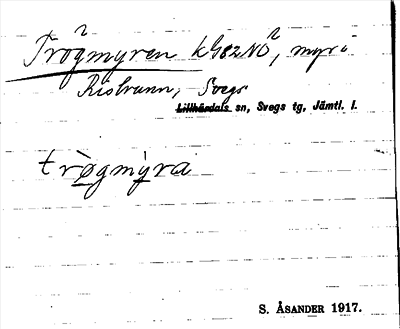 Trögmyren kG82NO², myr i
Risbrunn, Svegs
Lillhärdals sn, Svegs tg, Jämtl. l.
trògmỳra
S. ÅSANDER 1917.